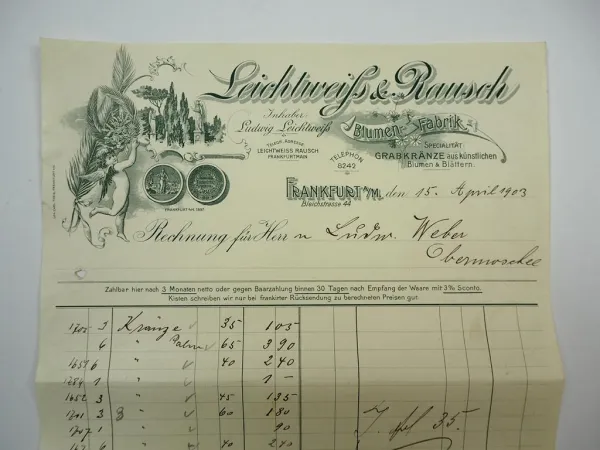 Leichtweiß & Rausch
Inhaber
Ludwig Leichtweiß
Blumen-Fabrik
TELEGR. ADRESSE:
LEICHTWEISS RAUSCH
FRANKFURTMAIN
TELEPHON
8242
SPECIALITÄT
GRABKRÄNZE aus künstlichen
Blumen & Blättern.
FRANKFURT A/M. den 15. April 1903
Bleichstrasse 44
Rechnung für Herrn Ludw. Weber
Obermoschel
Zahlbar hier nach 3 Monaten netto oder gegen Baarzahlung binnen 30 Tagen nach Empfang der Waare mit 3% Sconto.
Kisten schreiben wir nur bei frankirter Rücksendung zu berechneten Preisen gut.
3 Kränze 35 105
6 " Palm 65 390
1654 6 " 40 240
1284 1 " 1 -
1652 3 " 45 135
3 " 60 180
1 " 90
6 " 40 240
35.